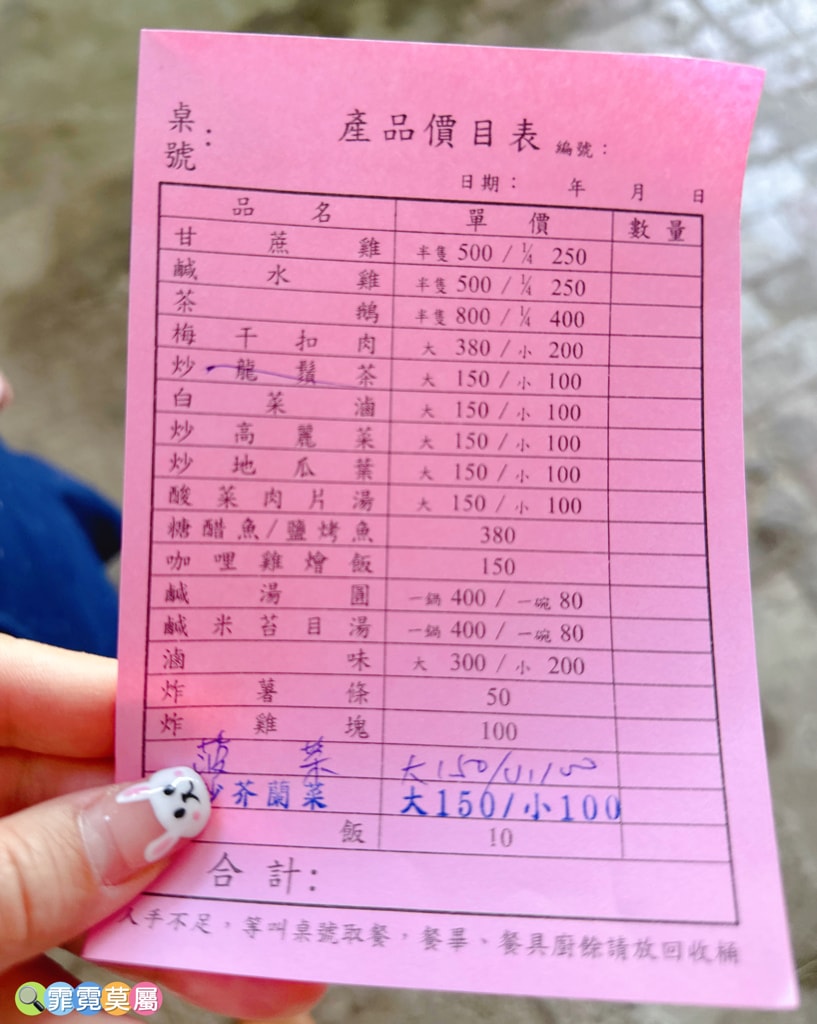 桌號： 產品價目表 編號：
日期： 年 月 日
品名 單價 數量
甘蔗雞 半隻 500 / ¼ 250
鹹水雞 半隻 500 / ¼ 250
茶鵝 半隻 800 / ¼ 400
梅干扣肉 大 380 / 小 200
炒龍鬚茶 大 150 / 小 100
白菜滷 大 150 / 小 100
炒高麗菜 大 150 / 小 100
炒地瓜葉 大 150 / 小 100
酸菜肉片湯 大 150 / 小 100
糖醋魚/鹽烤魚 380
咖哩雞燴飯 150
鹹湯圓 一鍋 400 / 一碗 80
鹹米苔目湯 一鍋 400 / 一碗 80
滷味 大 300 / 小 200
炸薯條 50
炸雞塊 100
菠菜 大150/小100
炒芥蘭菜 大150/小100
飯 10
合計：
人手不足，等叫桌號取餐，餐畢、餐具廚餘請放回收桶
霏霓莫屬